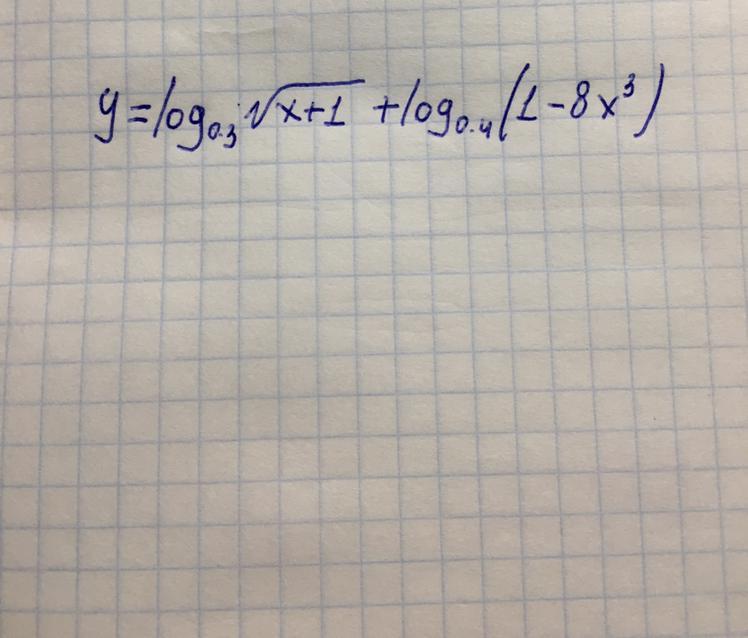 y = log₀.₃ √(x+1) + log₀.₄ (1 - 8x³)